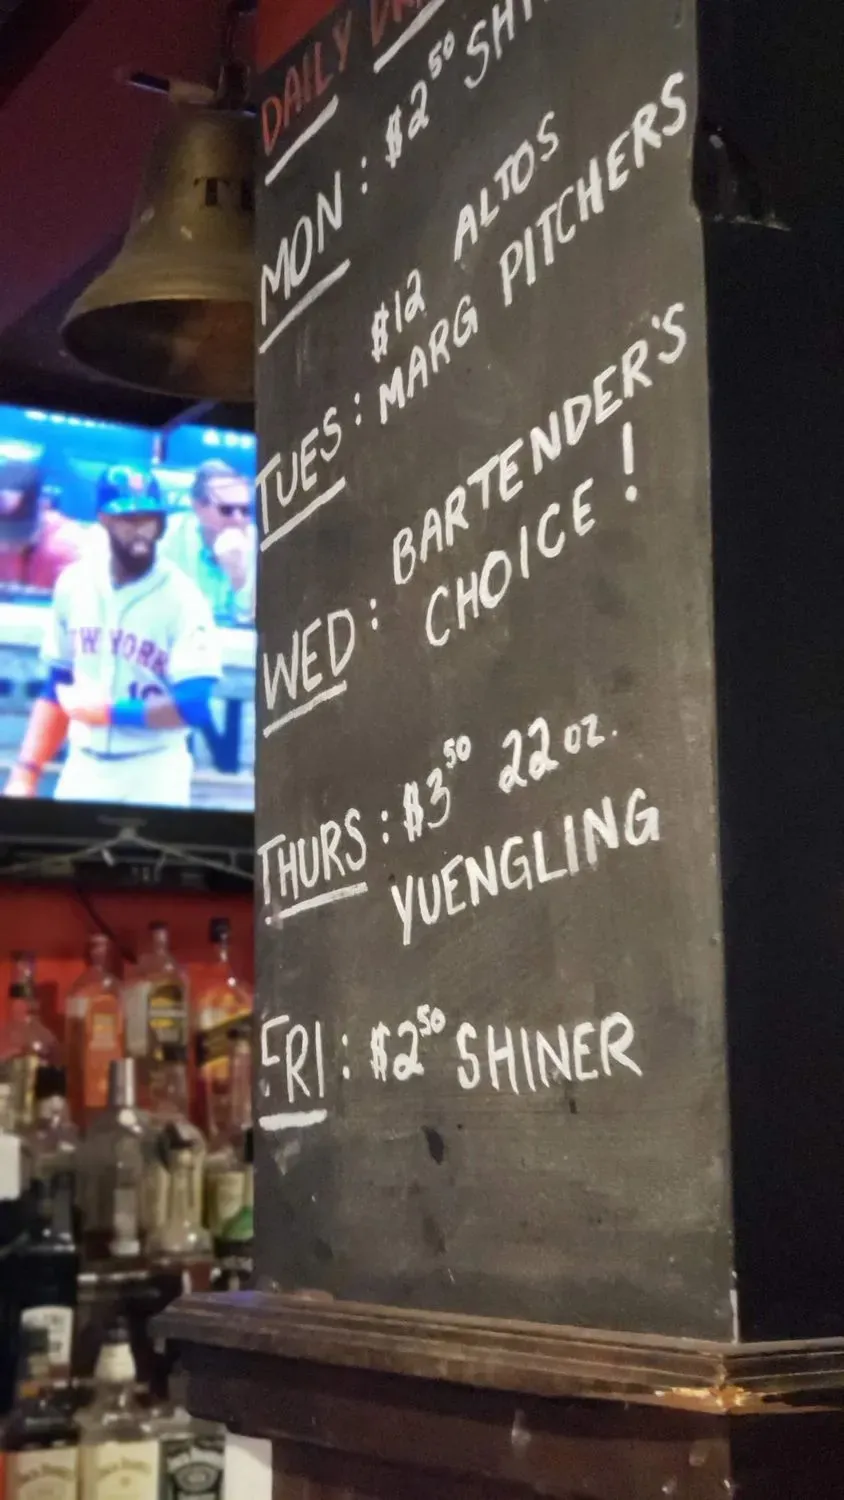 DAILY
MON: $2.50
$12 ALTOS
TUES: MARG PITCHERS
BARTENDER'S
WED: CHOICE!
THURS: $3.50 22 oz.
YUENGLING
FRI: $2.50 SHINER
NEW YORK